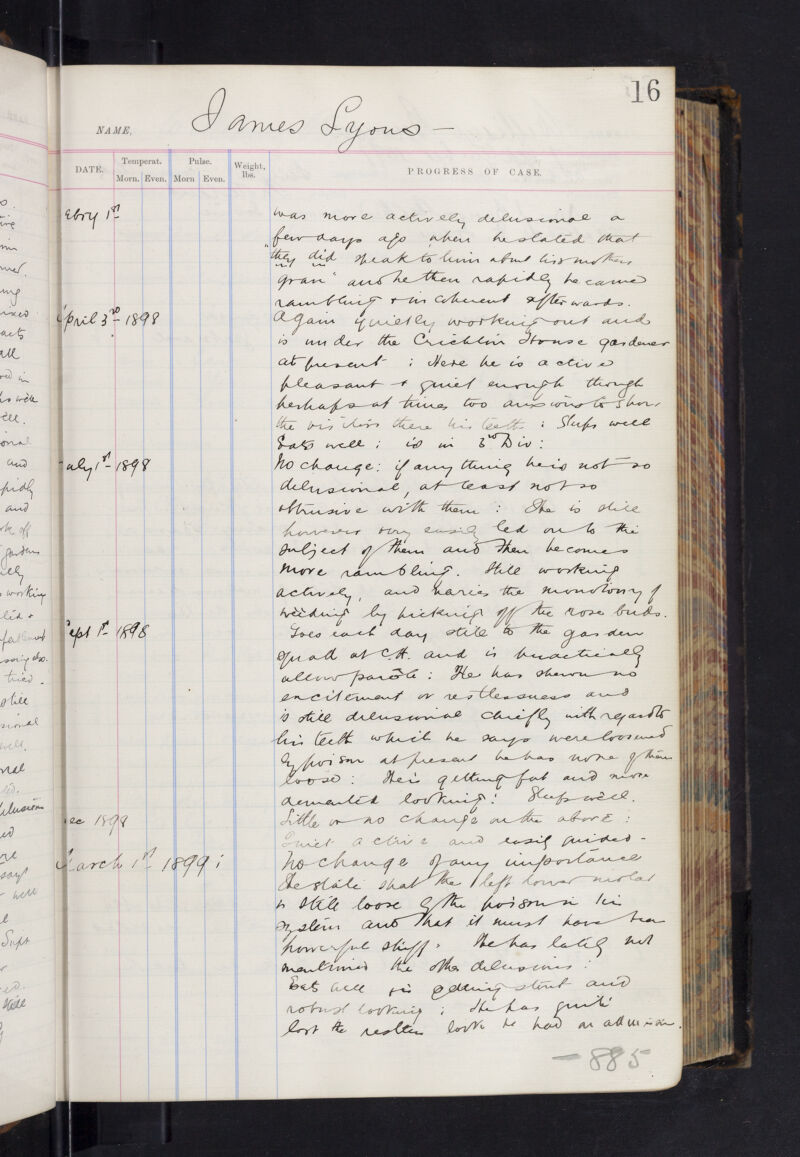 16
NAME, James Lyons —
DATE. Temperat. Pulse. Weight, lbs. PROGRESS OF CASE.
Morn. Even. Morn Even.
ebry 1st was more actively delusional a
few days ago when he stated that
"they did speak to him about his mothers
" and he then rapidly became
rambling & incoherent afterwards.
April 3rd 1898 Again quietly working out and
is under the Crichton House gardener
at present : Here he is active
pleasant & quiet enough though
perhaps at times too anxious to show
the visitors there his teeth : Sleeps well
Eats well : is in 3rd Div :
July 1st 1898 No change : if anything he is not so
delusional, at least not so
obtrusive with them : He is still
however very easily led on to the
subject of them and then becomes
more rambling. Still working
actively, and varies the monotony of
weeding by picking off the rose buds.
Sept 1st 1898 Goes each day still to the garden
squad at C.H. and is practically
allow parole : He has shewn no
excitement or restlessness and
is still delusional chiefly with regard to
his teeth which he says were loosened
by poison at present he has none of them
loose : He is getting fat and more
demented looking : Sleeps well.
ec 1898 Little or no change on the above :
Quiet active and easily guided -
March 1st 1899 : No change of any importance
He states that the left lower molar
is still loose by the poison in his
system and that it must have been
powerful stuff. He has lately not
mentioned the other delusions :
Eats well is getting stout and
robust looking : He has quite
lost the restless look he had on admission.
— 885